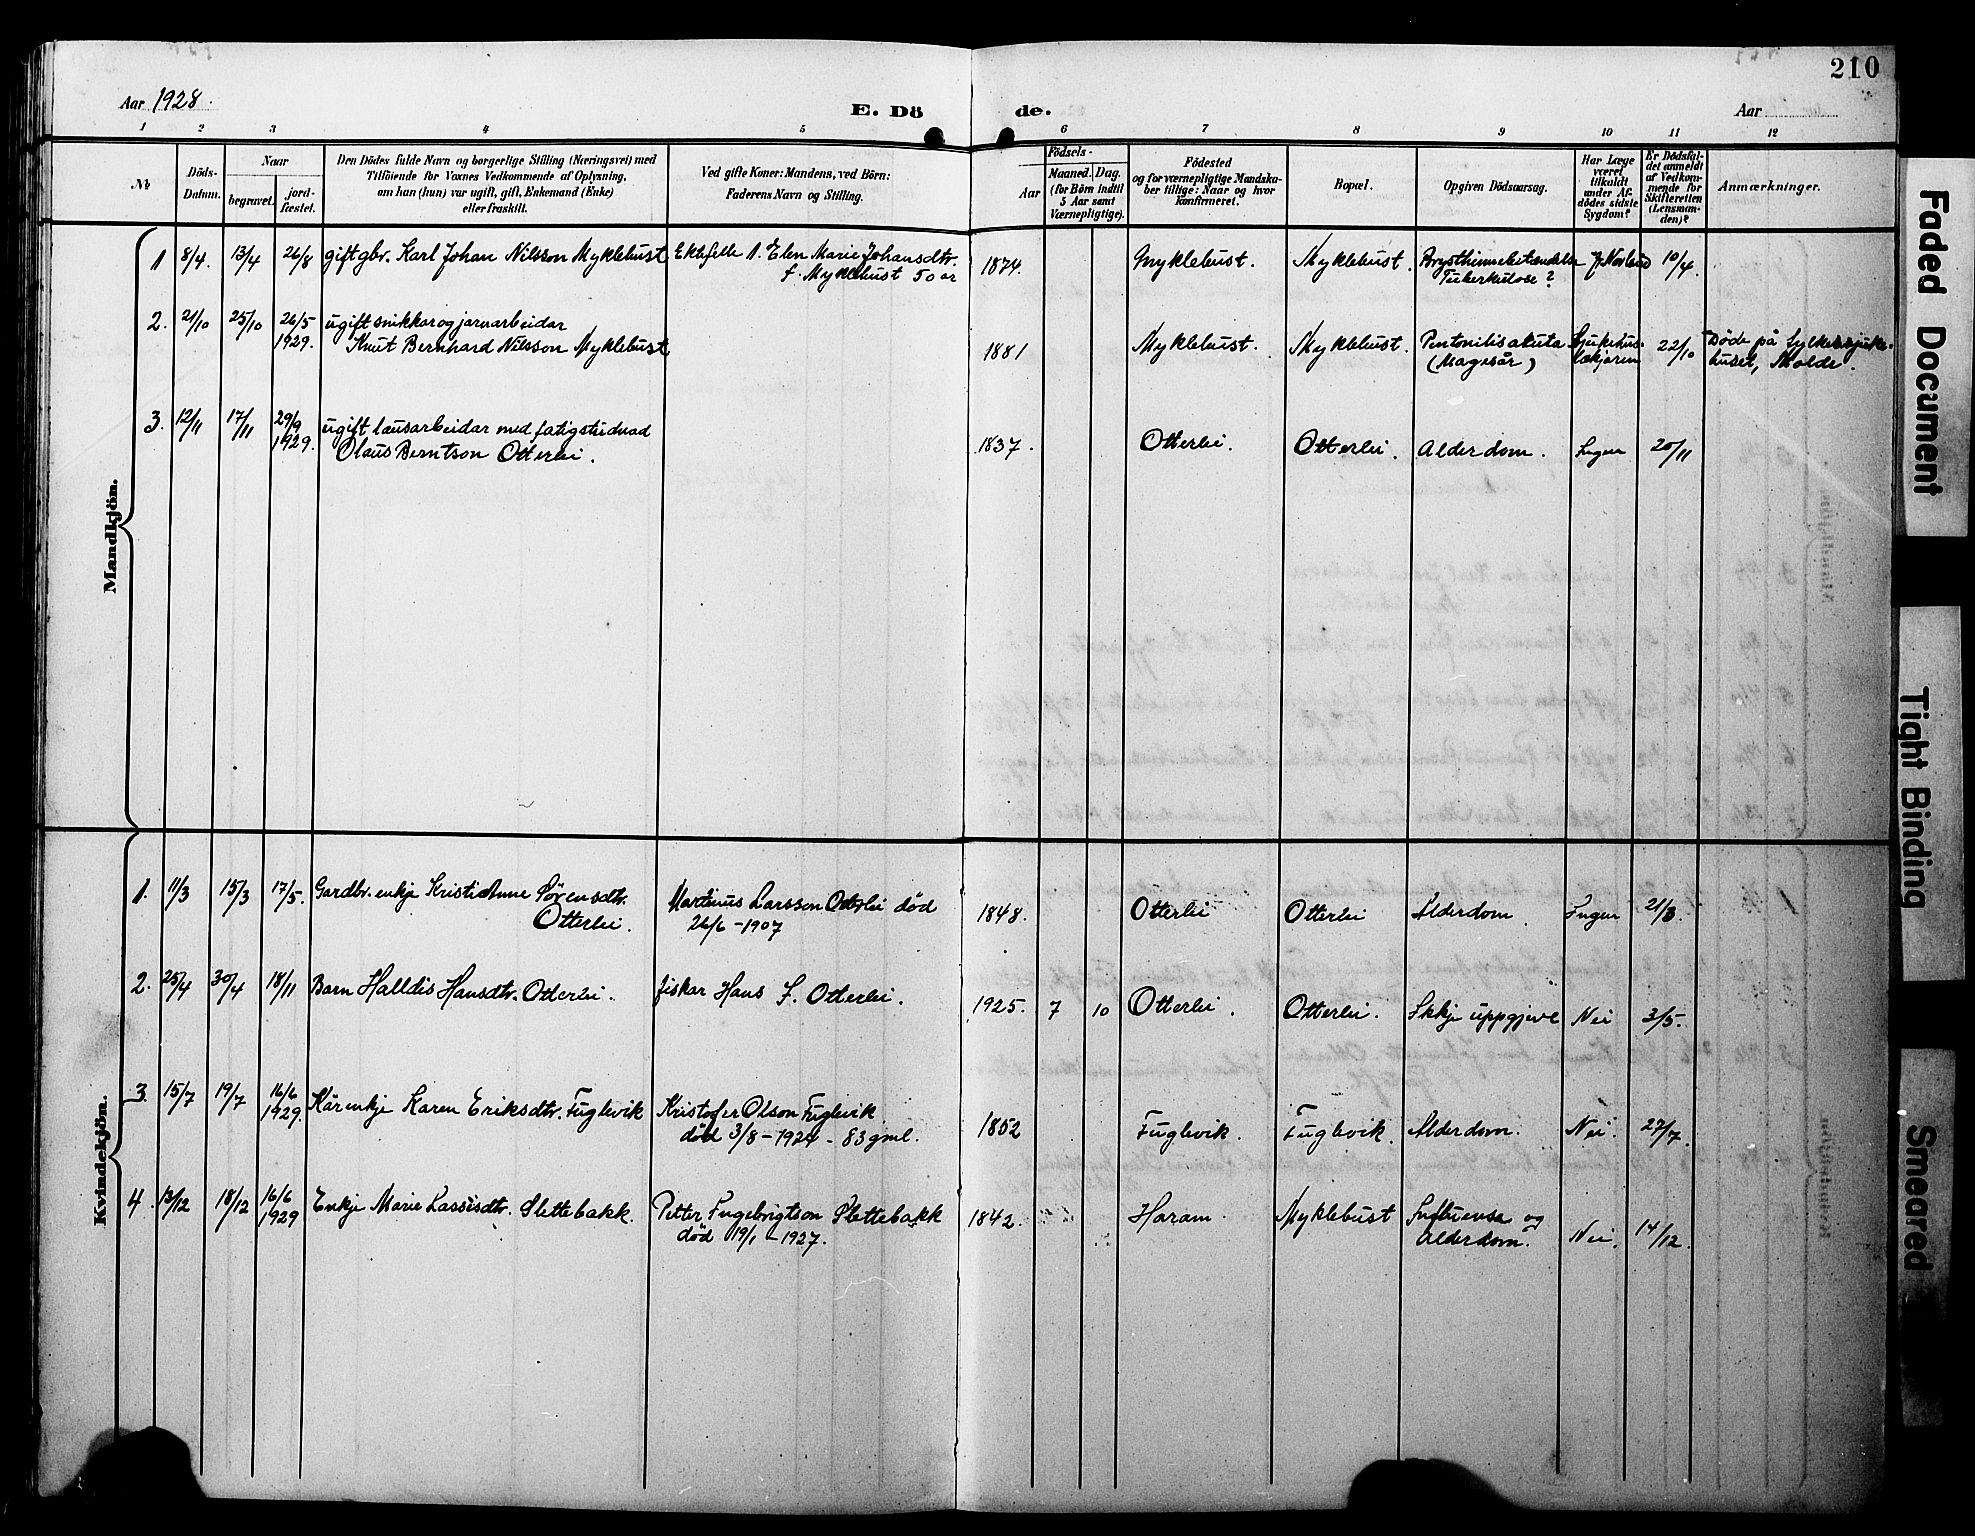 210
Aar 1928.
E. Dö de.
Aar
1 2 3 4 5 6 7 8 9 10 11 12
No
Döds-Datum.
Naar
begravet.
jord-fæstet.
Den Dödes fulde Navn og borgerlige Stilling (Næringsvei) med
Tilföiende for Voxnes Vedkommende af Oplysning,
om han (hun) var ugift, gift, Enkemand (Enke)
eller fraskilt.
Ved gifte Koner: Mandens, ved Börn:
Faderens Navn og Stilling.
Födsels-
Aar
Maaned. Dag.
(for Börn indtil
5 Aar samt
Værnepligtige).
Födested
og for værnepligtige Mandska-
ber tillige: Naar og hvor
konfirmeret.
Bopæl.
Opgiven Dödsaarsag.
Har Læge
været
tilkaldt
under Af-
dødes sidste
Sygdom?
Er Dödsfal-
det anmeldt
af Vedkom-
mende for
Skifteretten
(Lensman-
den)?
Anmærkninger.
Mandkjön.
1 8/4. 13/4 26/8 gift gbr. Karl Johan Nilsson Myklebust Ektefelle 1. Elen Marie Johansdtr.
f. Myklebust 50 år
1874. Myklebust. Myklebust. Brysthinnebetændelse
Tuberkulose? 10/4.
2. 21/10 25/10 26/5
1929. ugift snikkar og jarnarbeidar
Knut Bernhard Nilsson Myklebust
1881 Myklebust. Myklebust. (Magesår) Sjukehus-
lækjaren 22/10 Døde på Sylkesjuke-
huset, Molde.
3. 12/11 17/11 29/9
1929. ugift lausarbeidar med fatigstudnad
Olaus Berntson Otterlei.
1837. Otterlei. Otterlei. Alderdom. Ingen 20/11
Kvindekjön.
1. 11/3 15/3 17/5. Gardbr. enkje Kristianne Sörensdtr.
Otterlei.
Martinus Larsson Otterlei död
26/6 - 1907
1848. Otterlei Otterlei Alderdom. Ingen 21/3.
2. 25/4 30/4 18/11 Barn Halldis Hansdtr. Otterlei. fiskar Hans S. Otterlei.
1925. 7 10 Otterlei. Otterlei. Ikkje uppgjeve Nei 3/5.
3. 15/7 19/7 16/6
1929. Kårenkje Karen Eriksdtr. Fuglevik Kristofer Olson Fuglevik
död 3/8 - 1924 - 83 gml.
1852 Fuglevik. Fuglevik. Alderdom. Nei. 27/7.
4. 13/12 18/12 16/6
1929 Enkje Marie Lassisdtr. Slettebakk. Petter Ingebrigtson Slettebakk
död 19/1 - 1927.
1842. Haram. Myklebust Influensa og
Alderdom. Nei. 14/12.
Faded Document
Tight Binding
Smeared